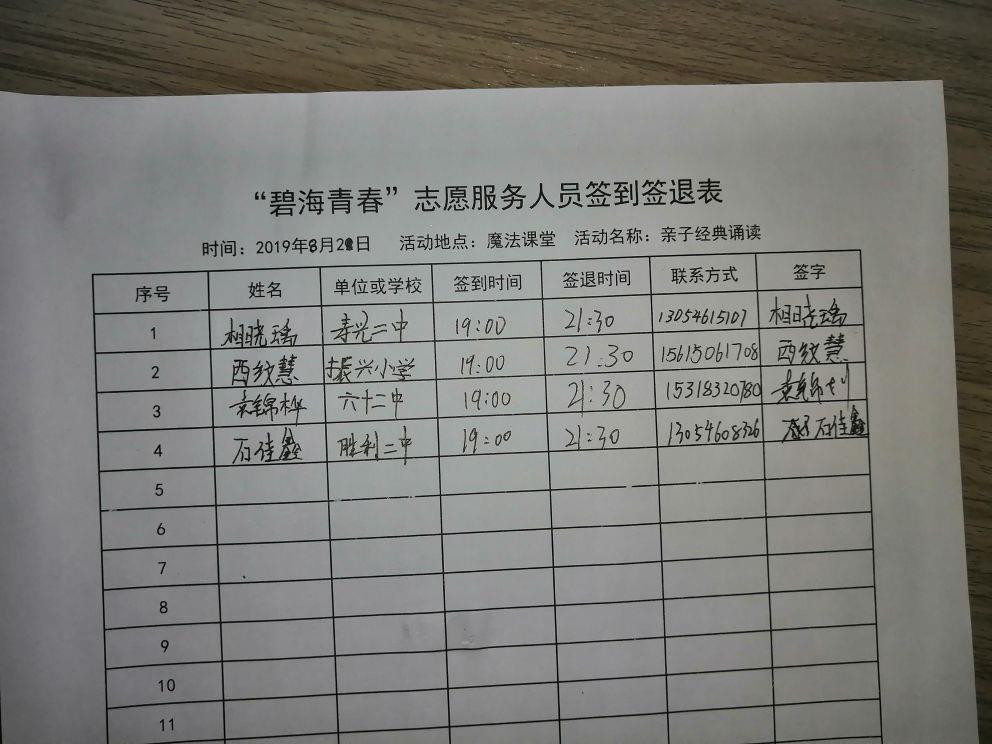 “碧海青春”志愿服务人员签到签退表
时间：2019年8月2日 活动地点：魔法课堂 活动名称：亲子经典诵读
序号 姓名 单位或学校 签到时间 签退时间 联系方式 签字
1 相晓瑀 寿光二中 19:00 21:30 13054615107 相晓瑀
2 西纹慧 振兴小学 19:00 21:30 15615061708 西纹慧
3 袁锦桦 六十二中 19:00 21:30 15318320780 袁锦
4 石佳鑫 胜利二中 19:00 21:30 13054608326 石佳鑫
5
6
7
8
9
10
11